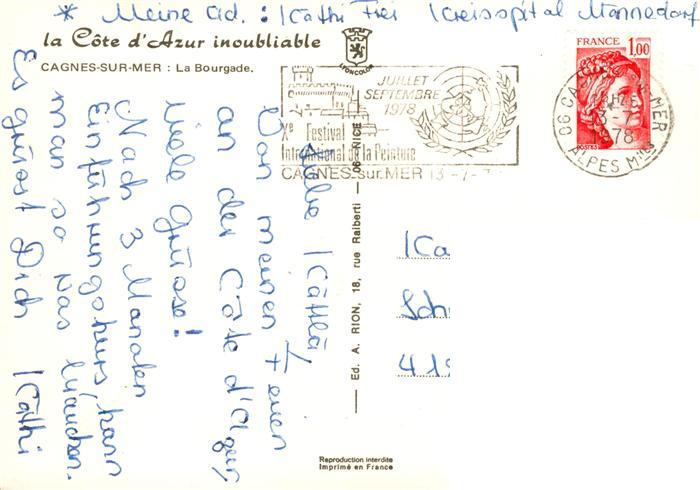 * Meine Ad.: Käthi Frei Kreisspital Männedorf
la Côte d'Azur inoubliable
CAGNES-SUR-MER : La Bourgade.
LYONCOLOR
JUILLET
SEPTEMBRE
1978
Xe Festival
International de la Peinture
CAGNES-sur-MER 13-7-
FRANCE 1,00
POSTES
06 CAGNES-SUR-MER
13-7
78
ALPES Mmes
Liebe Käthi,
Von meinen Ferien
an der Côte d'Azur,
viele Grüsse!
Nach 3 Monaten
Einführungskurs, kann
man so was brauchen.
Es grüsst Dich Käthi
Ed. A. RION, 18, rue Ralberti — 06 NICE
Ka
Sch
41
Reproduction interdite
Imprimé en France